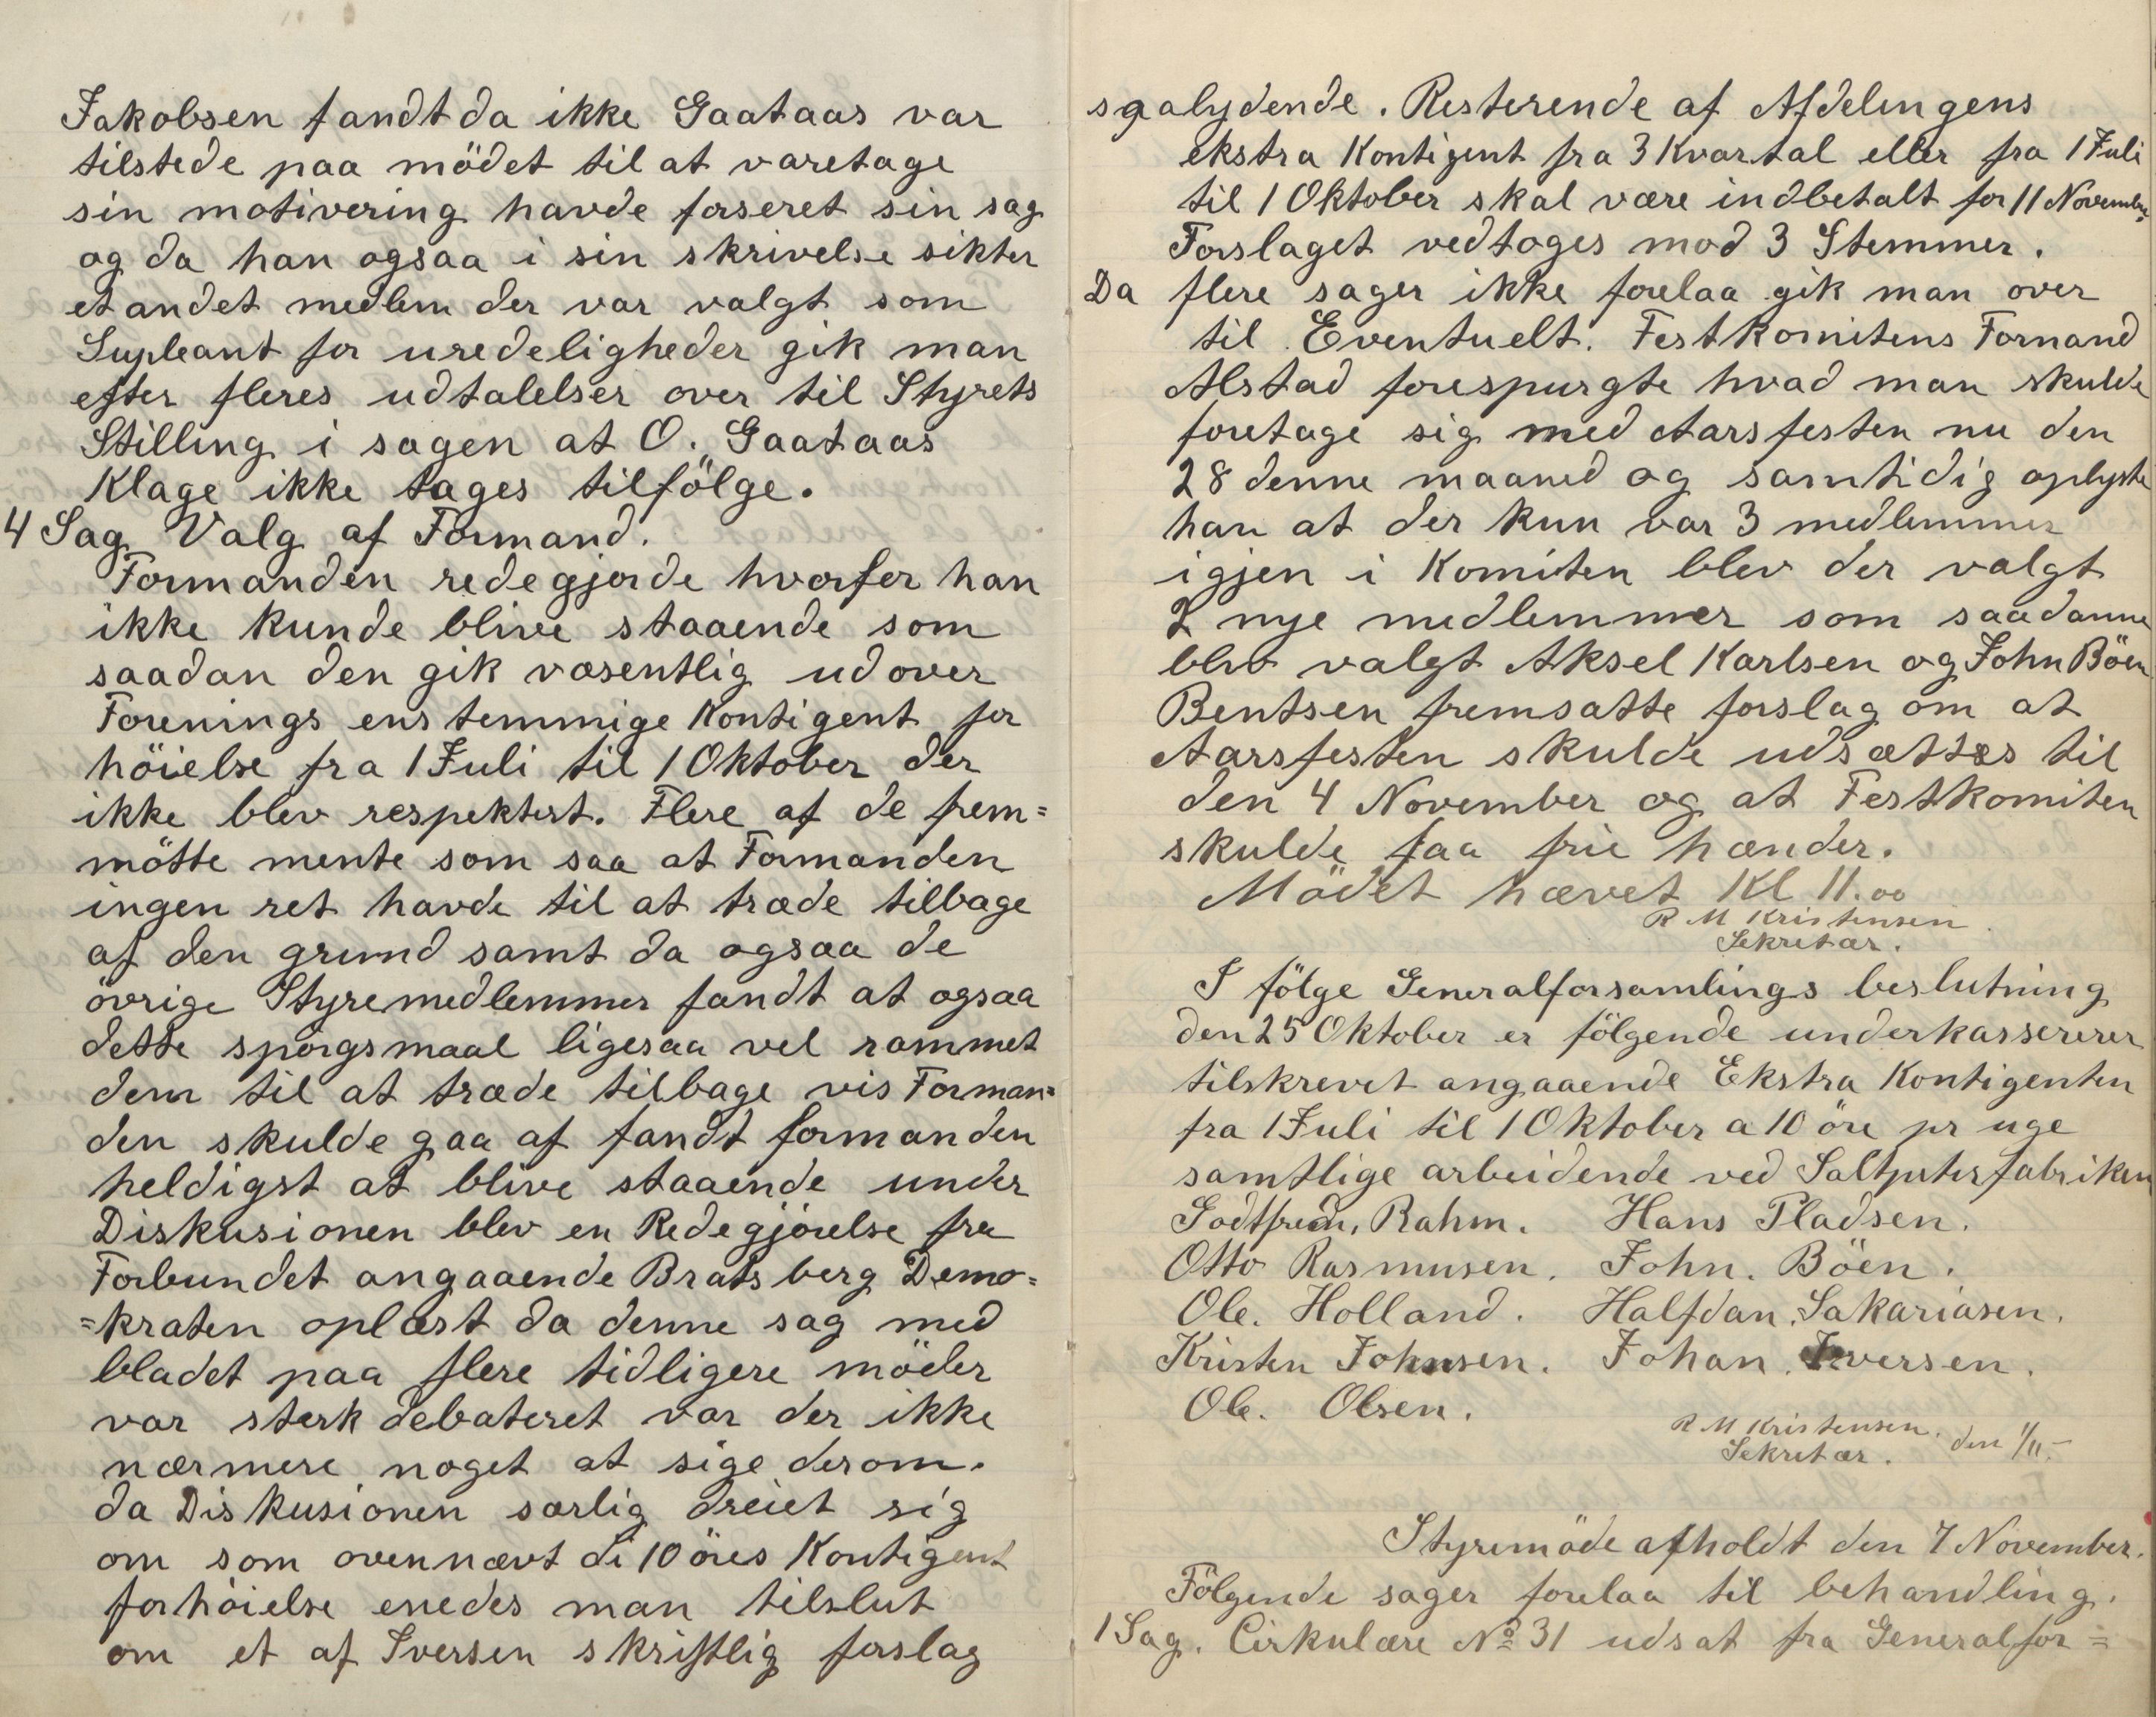 Jakobsen fandt da ikke Gaataas var
tilstede paa mödet til at varetage
sin motivering havde forseret sin sag
og da han ogsaa i sin skrivelse sikter
et andet medlem der var valgt som
Supleant for uredeligheder gik man
efter fleres udtalelser over til Styrets
Stilling i sagen at O. Gaataas
Klage ikke tages tilfölge.
4 Sag Valg af Formand.
Formanden redegjorde hvorfor han
ikke kunde blive staaende som
saadan den gik væsentlig ud over
Forenings enstemmige Kontigent for
höielse fra 1 Juli til 1 Oktober der
ikke blev respektert. Flere af de frem=
mötte mente som saa at Formanden
ingen ret havde til at træde tilbage
af den grund samt da ogsaa de
övrige Styremedlemmer fandt at ogsaa
dette spörgsmaal ligesaa vel rammet
dem til at træde tilbage vis Forman=
den skulde gaa af fandt formanden
heldigst at blive staaende under
Diskusionen blev en Redegjörelse fra
Forbundet angaaende Bratsberg Demo=
=kraten oplæst da denne sag med
bladet paa flere tidligere möder
var sterk debateret var der ikke
nærmere noget at sige derom.
da Diskusionen særlig dreiet sig
om som ovennævt de 10 öres Kontigent
forhöielse enedes man tilslut
om et af Iversen skriftlig forslag
saalydende. Resterende af Afdelingens
ekstra Kontigent fra 3 Kvartal eller fra 1 Juli
til 1 Oktober skal være indbetalt for 11 November
Forslaget vedtoges mod 3 Stemmer.
Da flere sager ikke forelaa gik man over
til Eventuelt. Festkomitens Formand
Alstad forespurgte hvad man skulde
foretage sig med Aarsfesten nu den
28 denne maaned og samtidig oplyste
han at der kun var 3 medlemmer
igjen i Komiten blev der valgt
2 nye medlemmer som saadanne
blev valgt Aksel Karlsen og John Böen
Bentsen fremsatte forslag om at
Aarsfesten skulde udsættes til
den 4 November og at Festkomiten
skulde faa frie hænder.
Mödet hævet Kl 11.00
R M Kristensen
Sekretær.
I fölge Generalforsamlings beslutning
den 25 Oktober er fölgende underkasserer
tilskrevet angaaende Ekstra Kontigenten
fra 1 Juli til 1 Oktober a 10 öre pr uge
samtlige arbeidende ved Saltpeterfabriken
Godtfred, Rahm. Hans Pladsen.
Otto Rasmusen. John. Böen.
Ole. Holland. Halfdan. Sakariasen.
Kristen Johnsen. Johan. Iversen.
Ole. Olsen.
R M Kristensen. den 1/11-
Sekretær.
Styremöde afholdt den 7 November.
Fölgende sager forelaa til behandling.
1 Sag. Cirkulære No 31 udsat fra Generalfor=